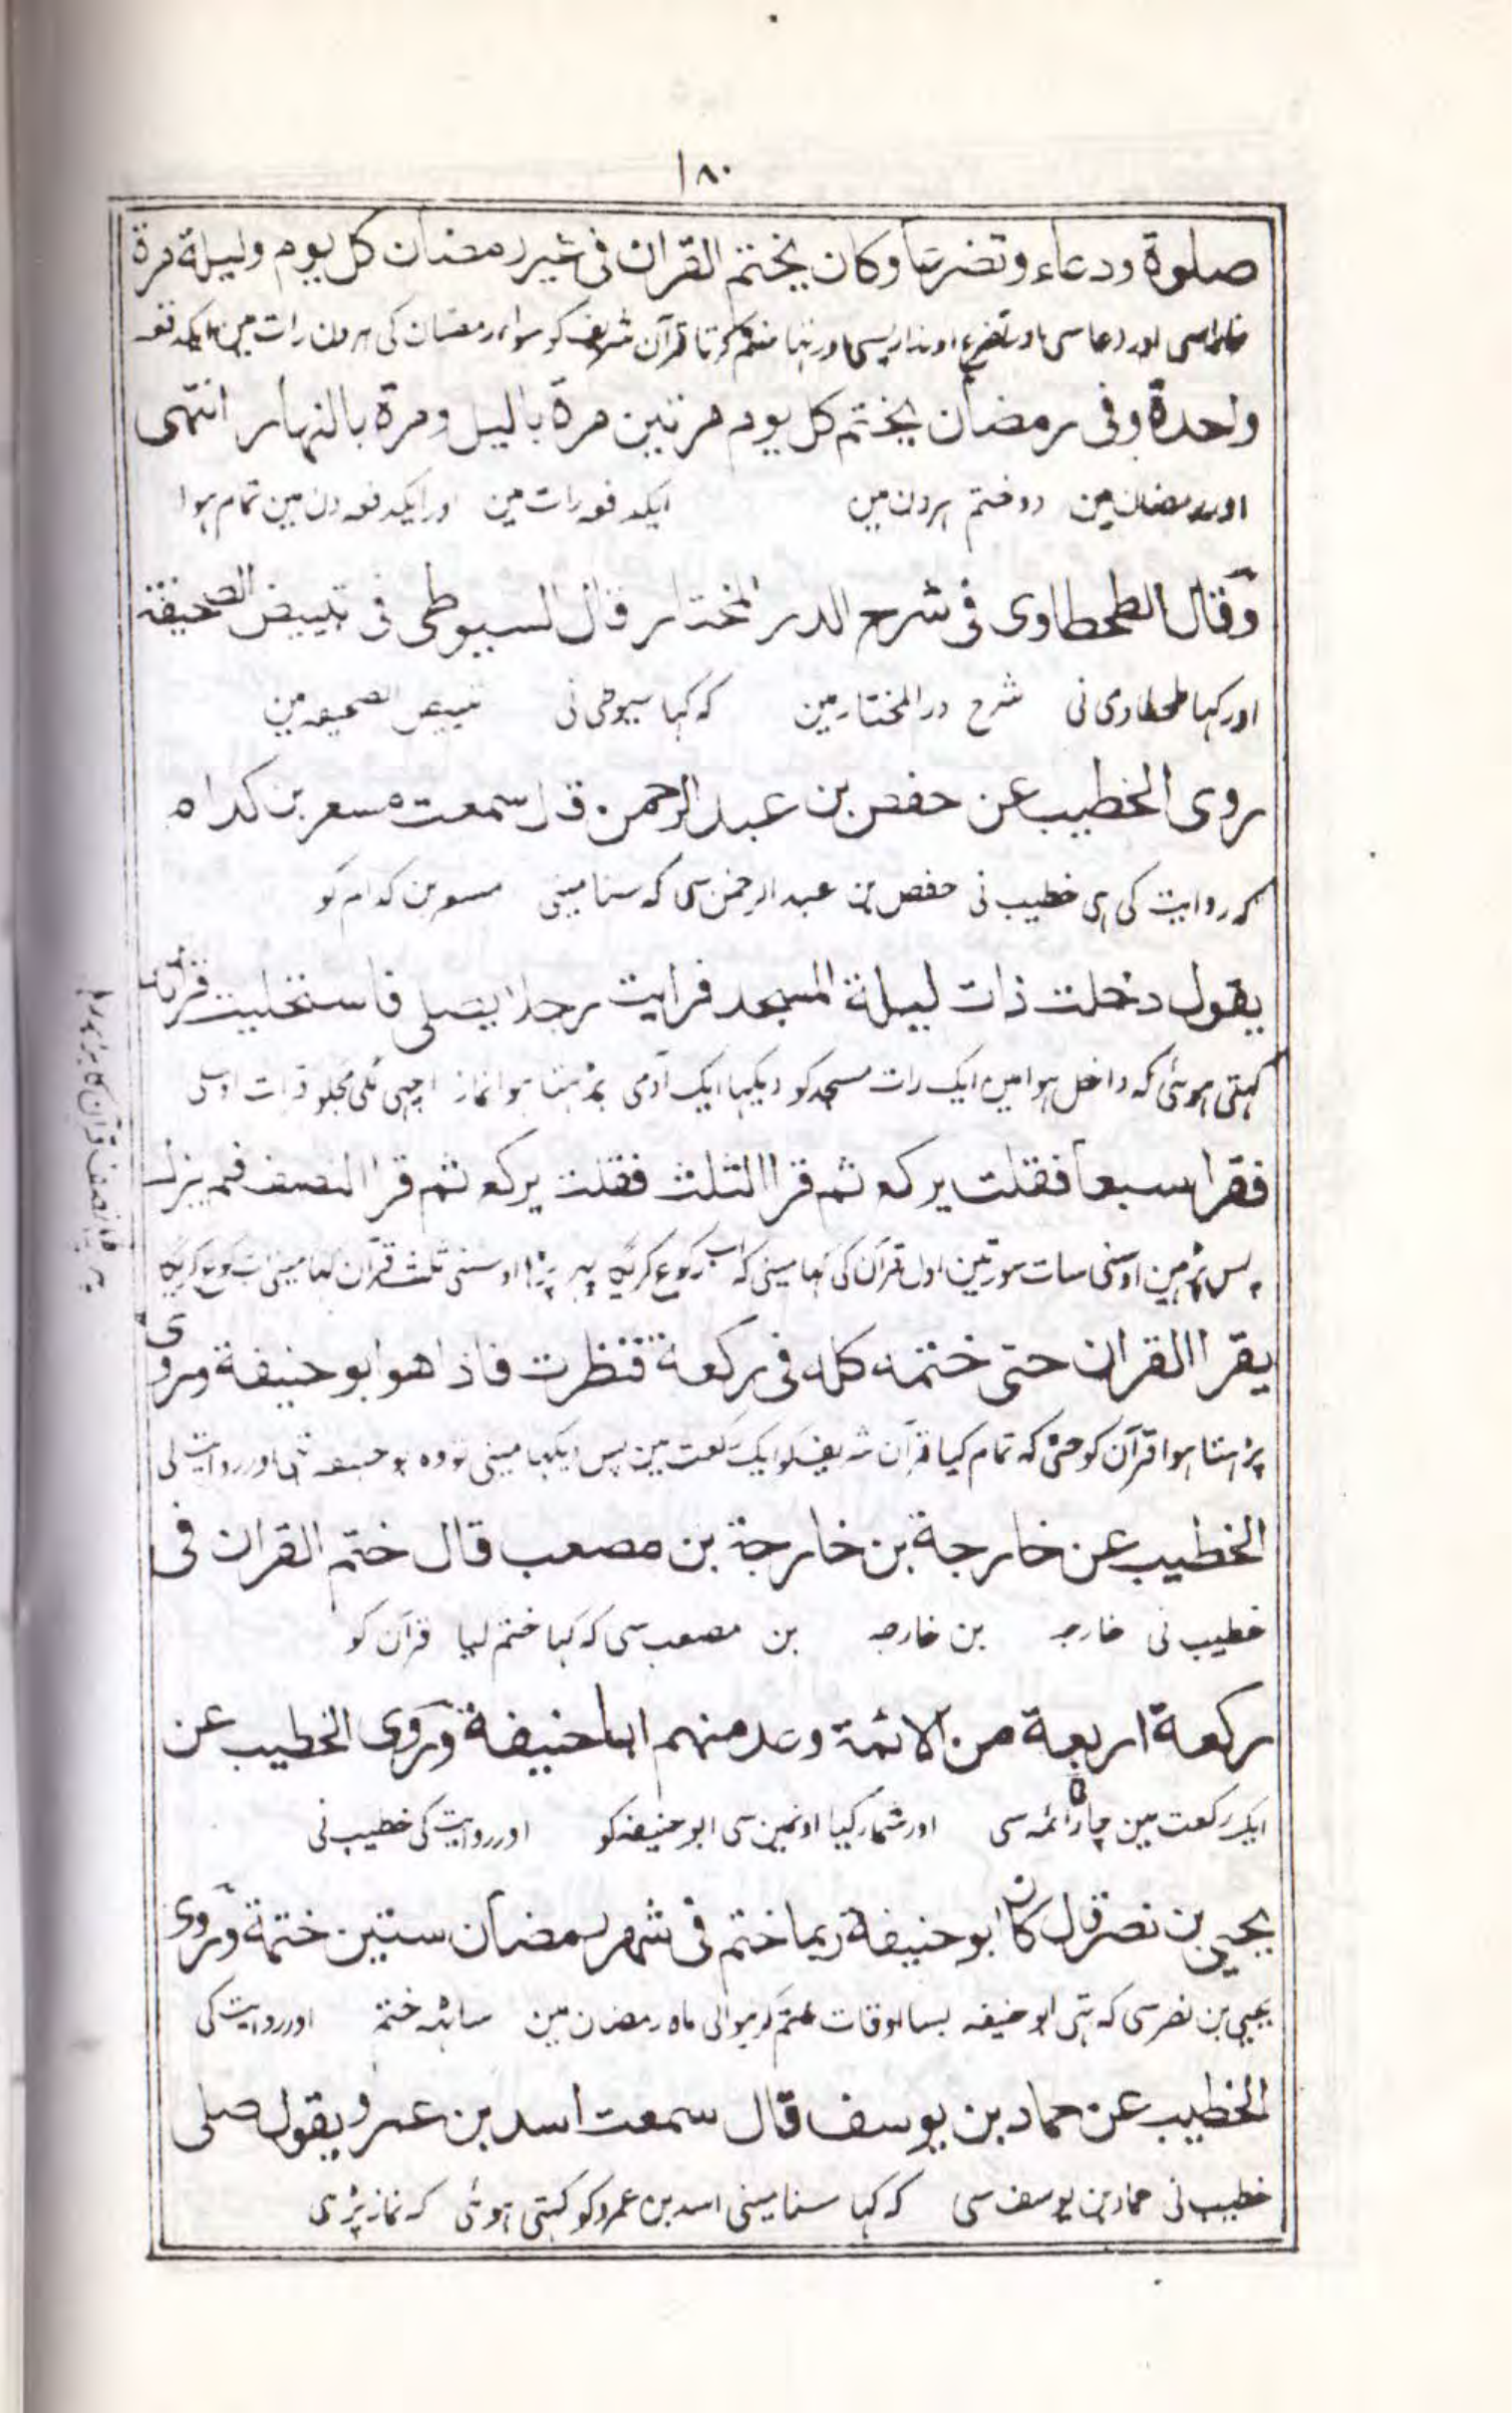 ١٨٠
صلوة ودعاء وتضرعا وكان يختم القران فى غير رمضان كل يوم وليلة مرة
اور دعا سى اور تضرع اور تها ختم كرتا قرآن شريف كو سواء رمضان كى هر دن رات مين ايكدفعہ
واحدة وفى رمضان يختم كل يوم مرتين مرة بالليل ومرة بالنهار انتهى
اور رمضان مين دو ختم ہر دن مين ايكدفعہ رات مين اور ايكدفعہ دن مين تمام ہوا
وقال الطحطاوى فى شرح الدر المختار قال السيوطى فى تبييض الصحيفة
اور كہا طحطاوى نى شرح در المختار مين كہ كہا سيوطى نى تبييض الصحيفہ مين
روى الخطيب عن حفص بن عبد الرحمن قال سمعت مسعر بن كدام
كہ روايت كى ہى خطيب نى حفص بن عبد الرحمن سى كہ سنا مينى مسعر بن كدام كو
يقول دخلت ذات ليلة المسجد فرايت رجلا يصلى فاستحليت قرأته
كہتى ہوئى كہ داخل ہوا مين ايك رات مسجد كو ديكہا ايك آدمى پڑہتا ہوا نماز اچہى لگى مجكو قرات اوسكى
فقرا سبعا فقلت يركع ثم قرا الثلث فقلت يركع ثم قرا النصف فلم يزل
پس پڑہين اوسنى سات سورتين اول قرآن كى كہا مينى كہ اب ركوع كريگا پہر پڑہا اوسنى ثلث قرآن كہا مينى اب ركوع كريگا
پہر پڑہا نصف قرآن كا پر ہوا
يقرا القران حتى ختمه كله فى ركعة فنظرت فاذا هو ابو حنيفة وروى
پڑہتا ہوا قرآن كو حتى كہ تمام كيا قرآن شريف كو ايك ركعت مين پس ديكہا مينى تو وہ ابو حنيفہ تہى اور روايت كى
الخطيب عن خارجة بن خارجة بن مصعب قال ختم القران فى
خطيب نى خارجہ بن خارجہ بن مصعب سى كہ كہا ختم كيا قرآن كو
ركعة اربعة من الائمة وعد منهم ابا حنيفة وروى الخطيب عن
ايك ركعت مين چار ائمہ سى اور شمار كيا اونمين سى ابو حنيفہ كو اور روايت كى خطيب نى
يحيى بن نصر قال كان ابو حنيفة ربما ختم فى شهر رمضان ستين ختمة وروى
يحيى بن نصر سى كہ تہى ابو حنيفہ بسا اوقات ختم كرنيوالى ماہ رمضان مين ساٹہ ختم اور روايت كى
الخطيب عن حماد بن يوسف قال سمعت اسد بن عمرو يقول صلى
خطيب نى حماد بن يوسف سى كہ كہا سنا مينى اسد بن عمرو كو كہتى ہوئى كہ نماز پڑہى